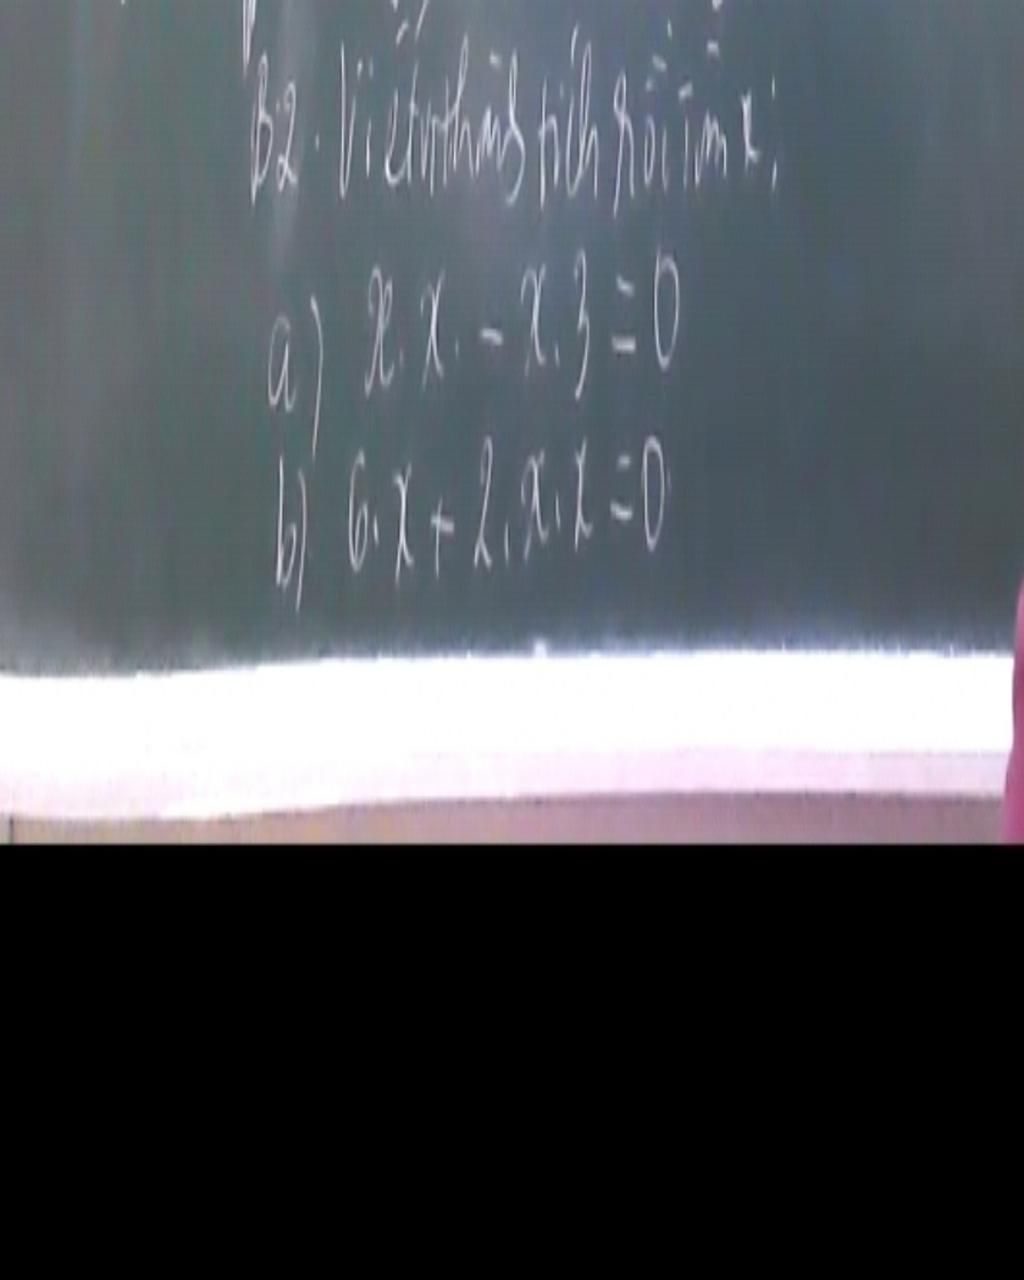 B2. Viết thành tích rồi tìm x:
a) x.x. - x.3 = 0
b) 6.x + 2.x.x = 0